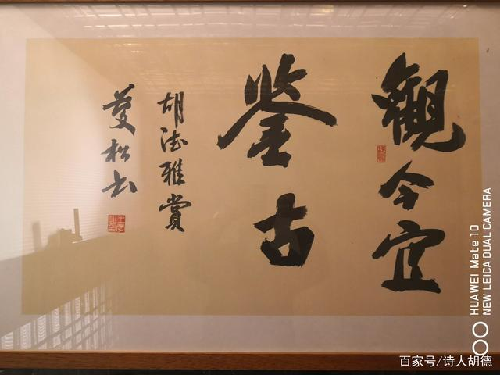 觀今宜
鉴古
胡德雅賞
松书
HUAWEI Mate 10
NEW LEICA DUAL CAMERA
百家号/诗人胡德